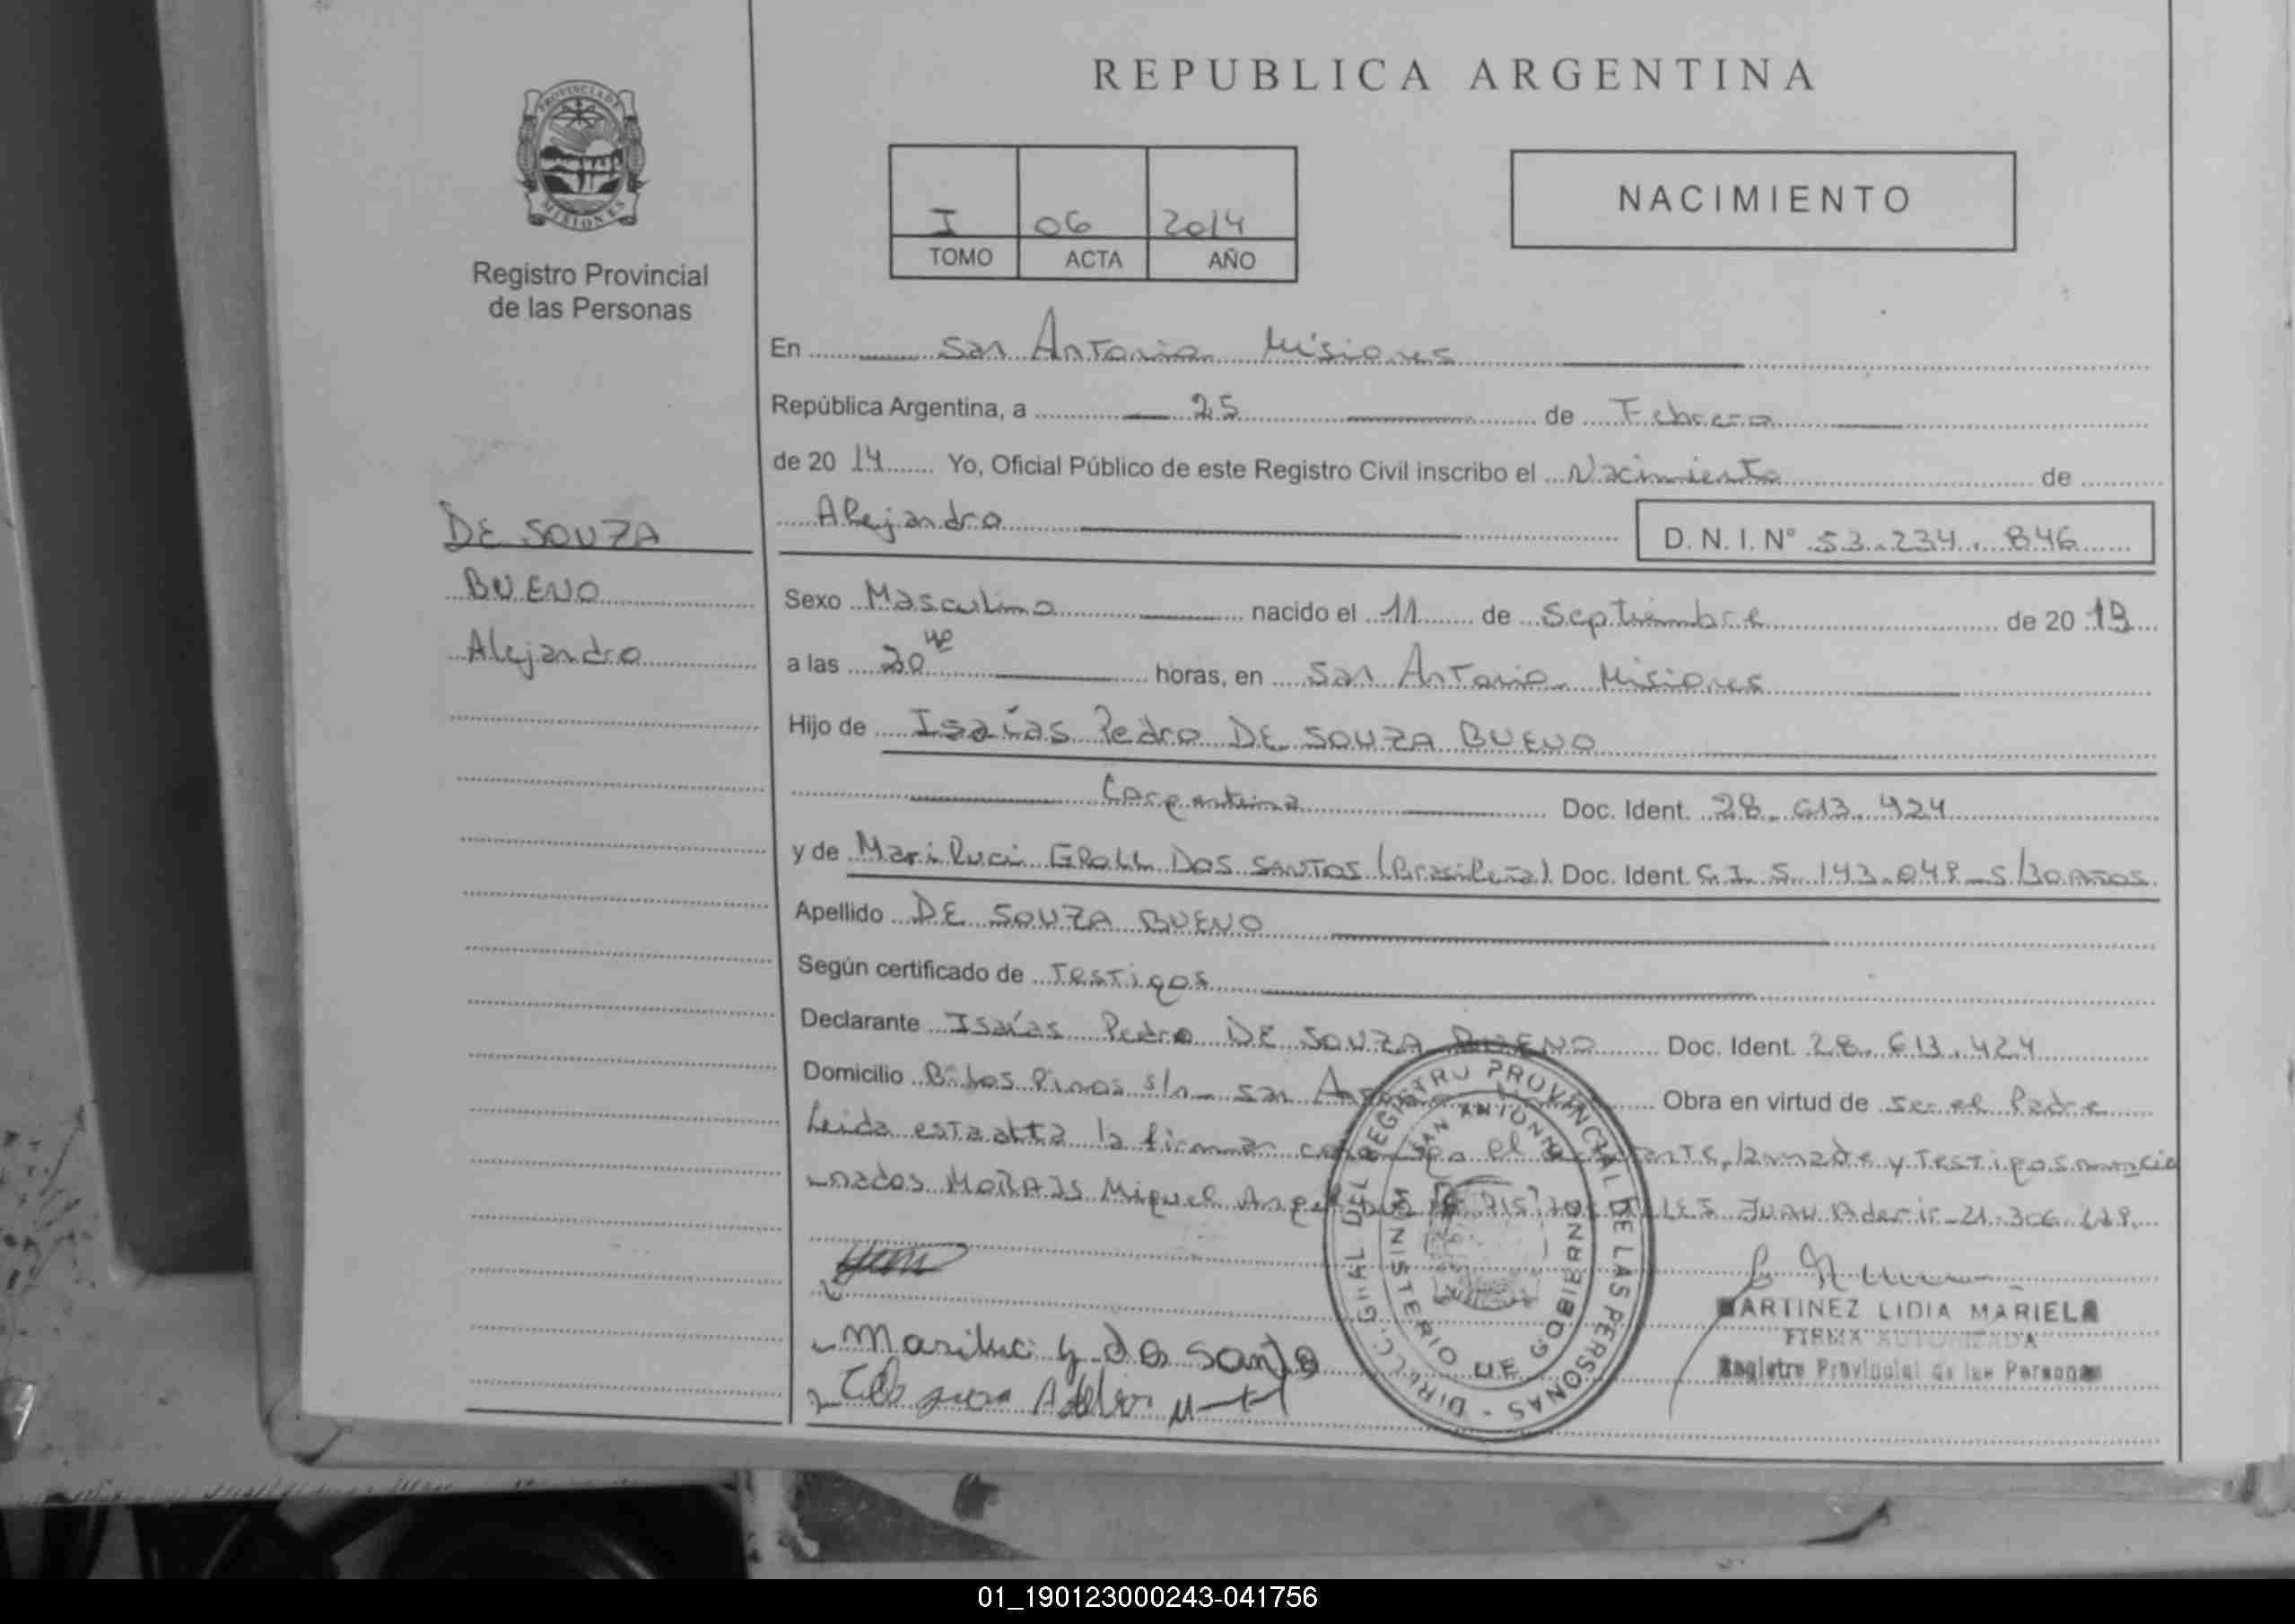 REPUBLICA ARGENTINA
PROVINCIA DE
MISIONES
Registro Provincial
de las Personas
I 06 2014
TOMO ACTA AÑO
NACIMIENTO
En San Antonio Misiones
República Argentina, a 25 de Febrero
de 20 14 Yo, Oficial Público de este Registro Civil inscribo el Nacimiento de
Alejandro D. N. I. N° 53.234.846
DE SOUZA
BUENO
Alejandro
Sexo Masculino nacido el 11 de Septiembre de 20 13
a las 20 horas, en San Antonio Misiones
Hijo de Isaías Pedro DE SOUZA BUENO
Doc. Ident. 28.613.424
y de Mari Luci GROLL DOS SANTOS (Brasileña) Doc. Ident. C.I. 5.143.048-5/30 Años.
Apellido DE SOUZA BUENO
Según certificado de Testigos
Declarante Isaías Pedro DE SOUZA BUENO Doc. Ident. 28.613.424
Domicilio B: Los Pinos s/n- San Obra en virtud de ser el Padre
Leida esta acta la firman el la madre y Testigos mencio
-nados MORAIS Miguel Angel JUAN Aderir-21.306.
DIREC. G'RAL DEL REGISTRO PROVINCIAL DE LAS PERSONAS -
SAN ANTONIO
MINISTERIO DE GOBIERNO
MARTINEZ LIDIA MARIELA
FIRMA AUTORIZADA
Registro Provincial de las Personas
Mariluci g dos santos
01_190123000243-041756